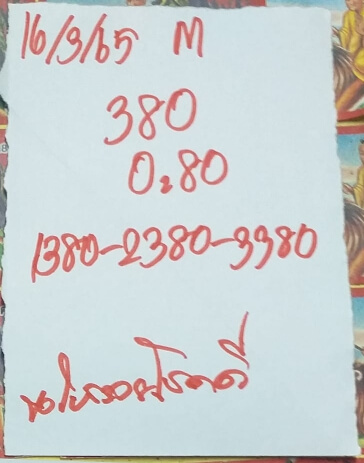 16/3/65 M
380
0.80
1380-2380-3380
ขอให้รวยโชคดี